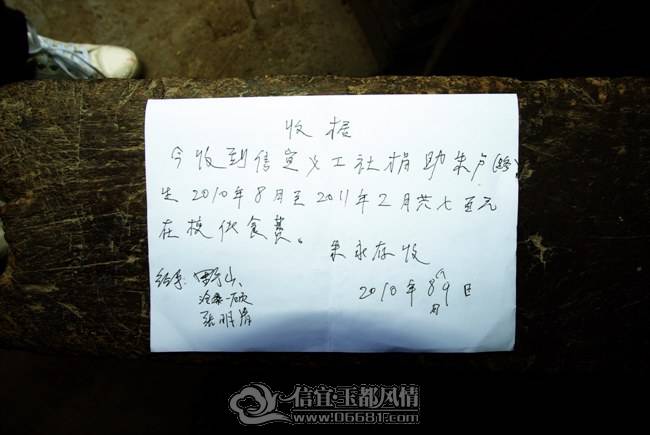 收据
今收到信宜义工社捐助朱卢
生2010年8月至2011年2月共七百元
在校伙食费。
朱永存收
经手:野山、
张明
2010年8月9日
信宜·玉都风情
www.06681.com